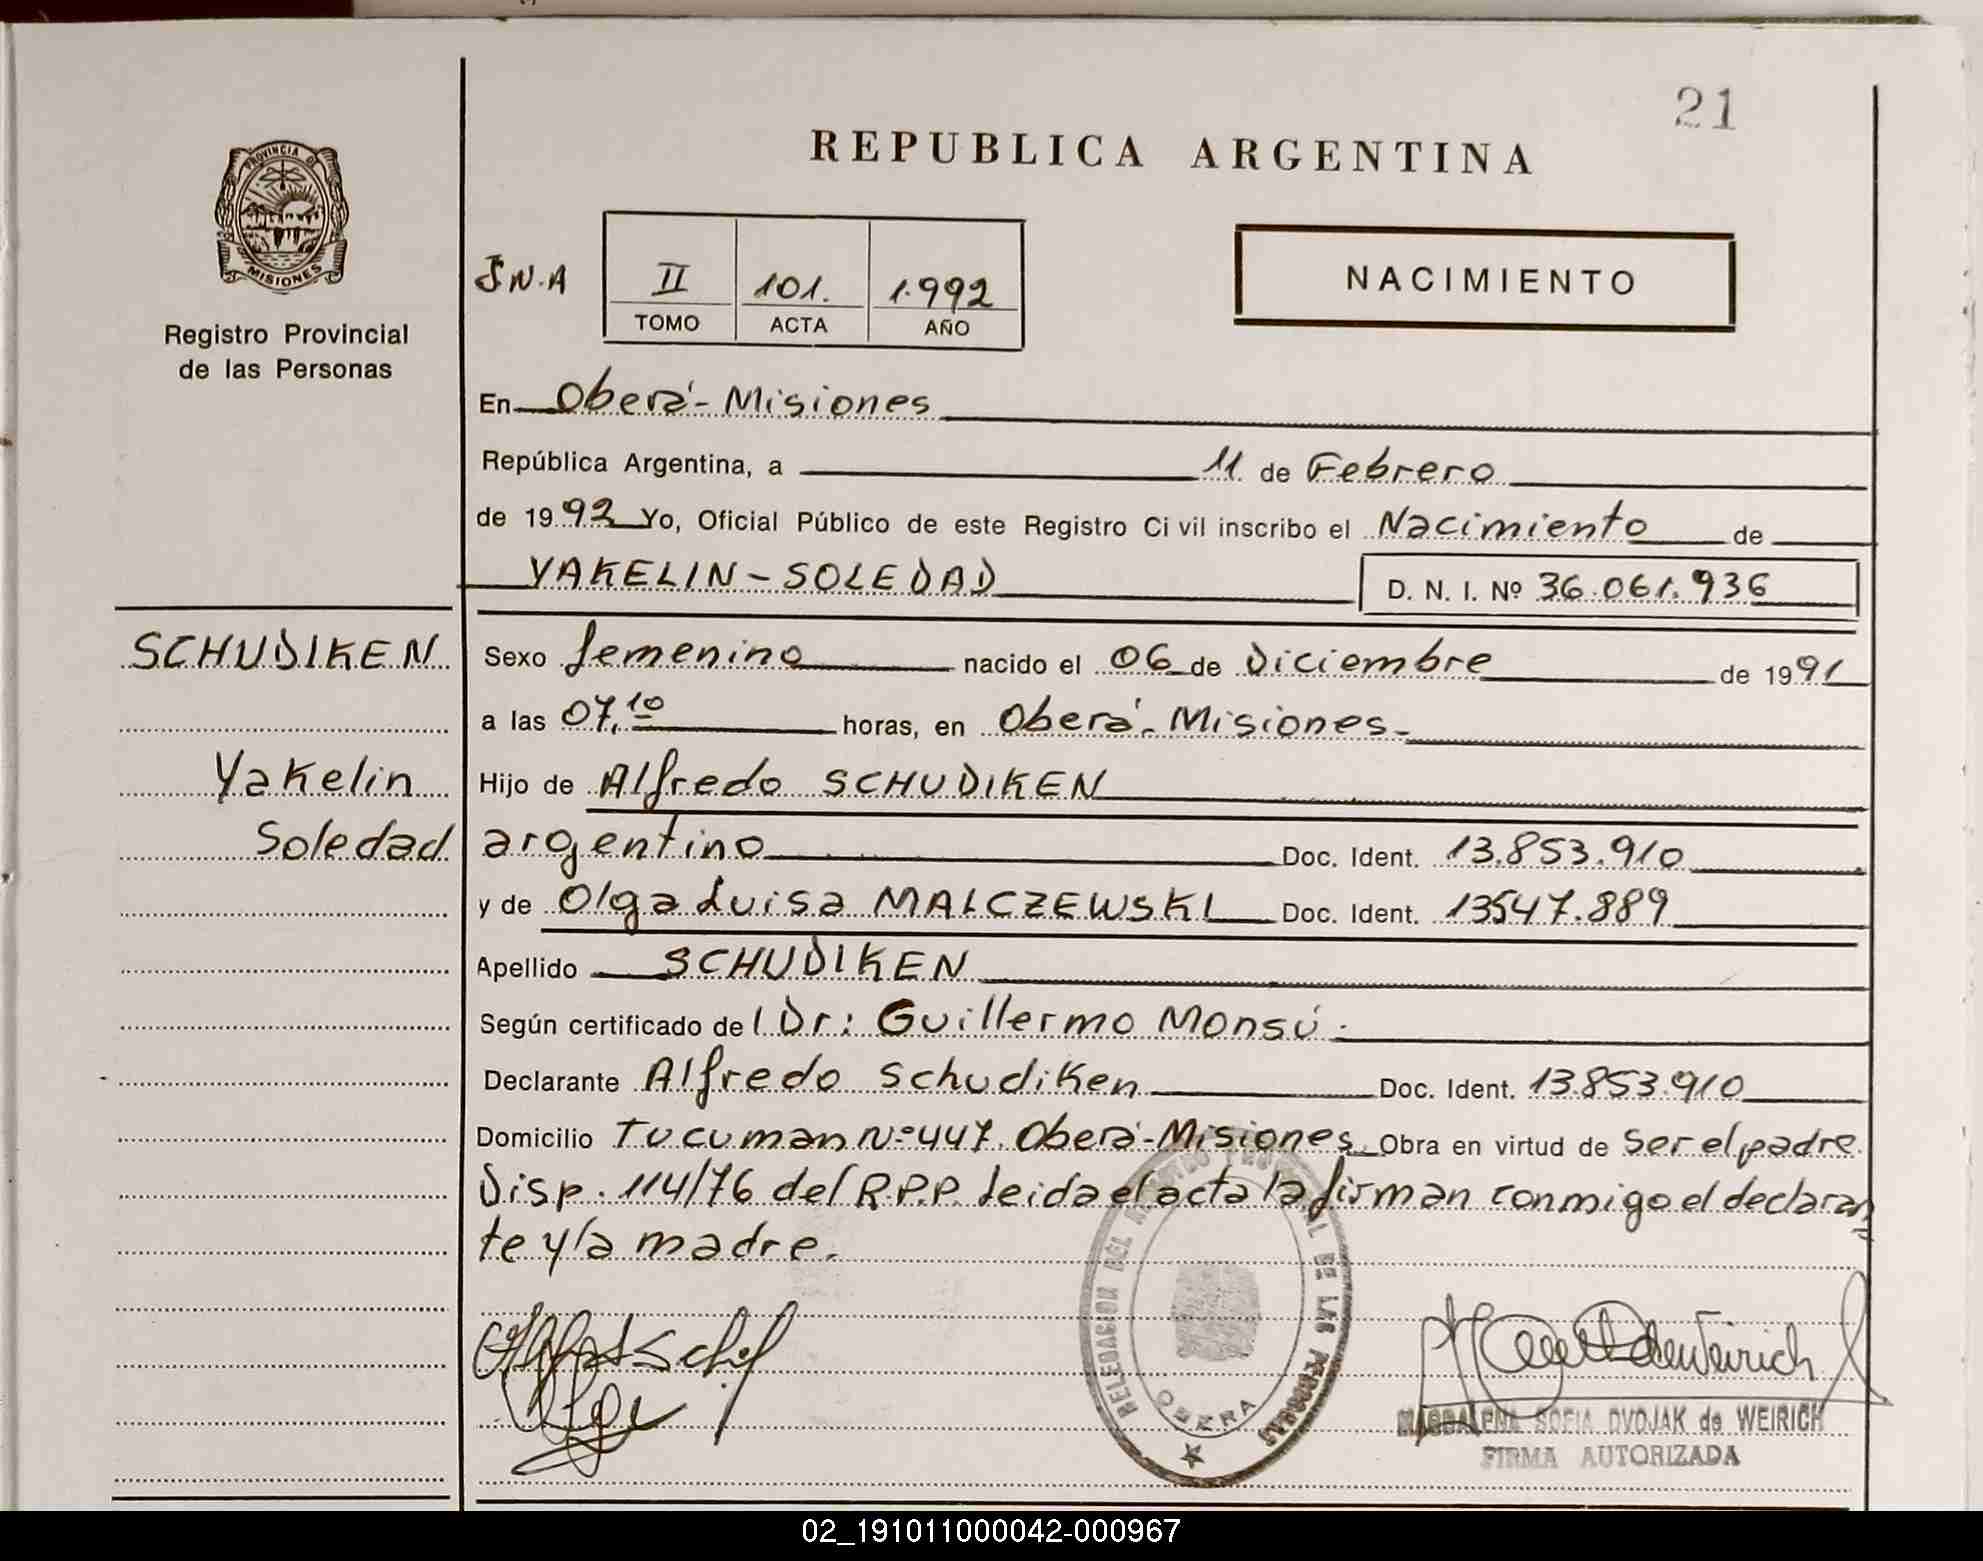 21
REPUBLICA ARGENTINA
PROVINCIA DE
MISIONES
Registro Provincial
de las Personas
J.N.A
II 101. 1.992
TOMO ACTA AÑO
NACIMIENTO
En Oberá-Misiones
República Argentina, a 11 de Febrero
de 1992 Yo, Oficial Público de este Registro Civil inscribo el Nacimiento de
YAKELIN-SOLEDAD D. N. I. Nº 36.061.936
SCHUDIKEN
Yakelin
Soledad
Sexo femenino nacido el 06 de Diciembre de 1991
a las 07,10 horas, en Oberá-Misiones-
Hijo de Alfredo SCHUDIKEN
argentino Doc. Ident. 13.853.910
y de Olga Luisa MALCZEWSKI Doc. Ident. 13547.889
Apellido SCHUDIKEN
Según certificado del Dr: Guillermo Monsú.
Declarante Alfredo Schudiken Doc. Ident. 13.853.910
Domicilio Tucuman Nº 447. Oberá-Misiones. Obra en virtud de ser el padre
Disp. 114/76 del R.P.P. Leida el acta la firman conmigo el declaran
te y la madre.
DELEGACION DEL REGISTRO PROVINCIAL DE LAS PERSONAS
OBERA
MAGDALENA SOFIA DVOJAK de WEIRICH
FIRMA AUTORIZADA
02_191011000042-000967